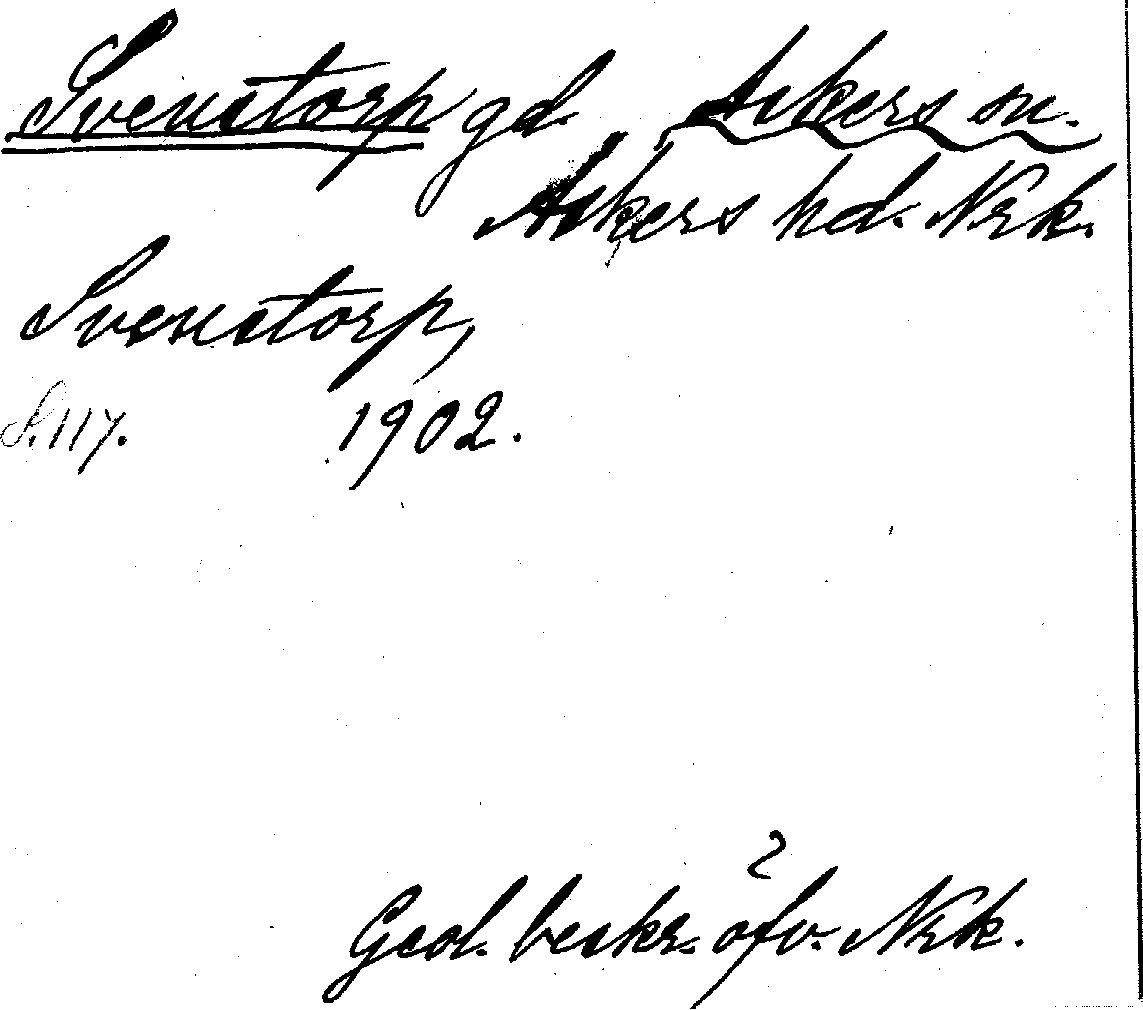 Svenstorp gd, Askers sn.
Askers hd. Nrk.
Svenstorp,
S. 117. 1902.
Geol. beskr. öfv. Nrk.